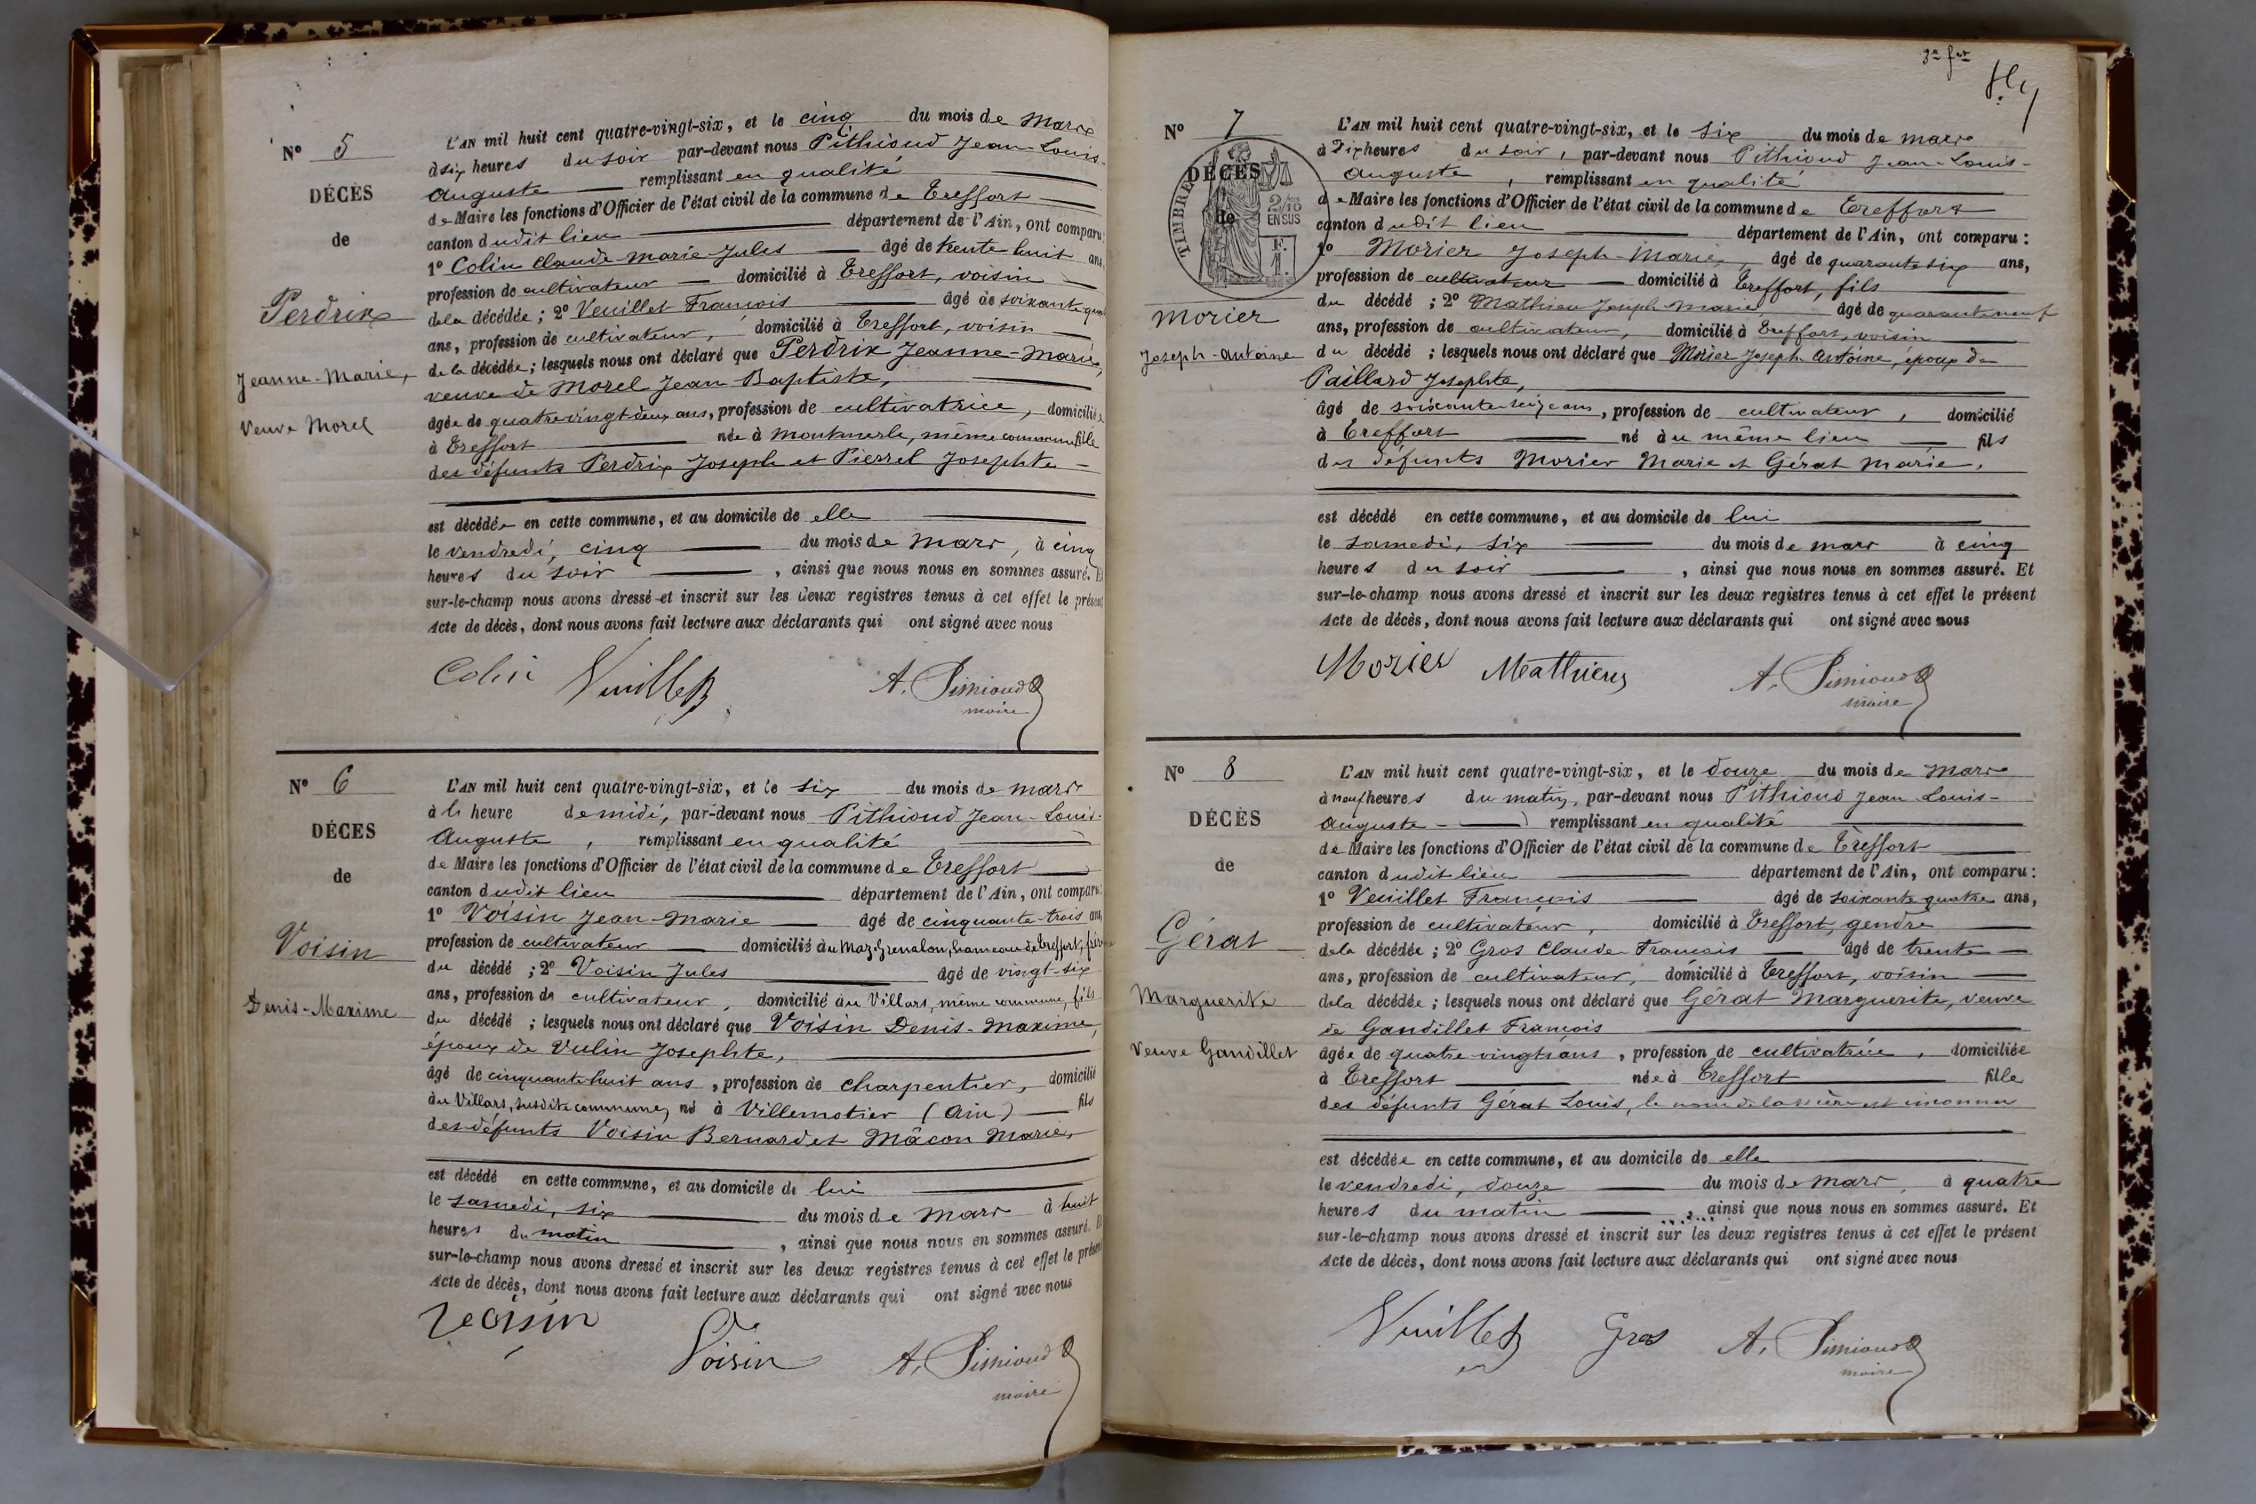 N° 5
DÉCÈS
de
Perdrix
Jeanne-Marie,
Veuve Morel
L'AN mil huit cent quatre-vingt-six, et le cinq du mois de Mars
à six heures du soir par-devant nous Pithioud Jean-Louis-
Auguste remplissant en qualité
de Maire les fonctions d'Officier de l'état civil de la commune de Treffort
canton dudit lieu département de l'Ain, ont comparu:
1° Colin Claude-Marie-Jules âgé de trente huit ans,
profession de cultivateur domicilié à Treffort, voisin
de la décédée; 2° Veuillet François âgé de soixante quatre
ans, profession de cultivateur, domicilié à Treffort, voisin
de la décédée; lesquels nous ont déclaré que Perdrix Jeanne-Marie,
veuve de Morel Jean Baptiste,
âgée de quatre vingt deux ans, profession de cultivatrice, domiciliée
à Treffort née à Montmerle, même commune fille
des défunts Perdrix Joseph et Pierrel Josephte
est décédée en cette commune, et au domicile de elle
le vendredi, cinq du mois de Mars, à cinq
heures du soir, ainsi que nous nous en sommes assuré. Et
sur-le-champ nous avons dressé et inscrit sur les deux registres tenus à cet effet le présent
Acte de décès, dont nous avons fait lecture aux déclarants qui ont signé avec nous
Colin Veuillet A. Pithioud
maire
N° 6
DÉCES
de
Voisin
Denis-Maxime
L'AN mil huit cent quatre-vingt-six, et le six du mois de mars
à l' heure de midi, par-devant nous Pithioud Jean-Louis-
Auguste, remplissant en qualité
de Maire les fonctions d'Officier de l'état civil de la commune de Treffort
canton dudit lieu département de l'Ain, ont comparu:
1° Voisin Jean-Marie âgé de cinquante-trois ans,
profession de cultivateur domicilié au Maz-Grenalon, hameau de Treffort, frère
du décédé; 2° Voisin Jules âgé de vingt-six
ans, profession de cultivateur, domicilié au Villars, même commune, fils
du décédé; lesquels nous ont déclaré que Voisin Denis-Maxime,
époux de Vulin Josephte,
âgé de cinquante huit ans, profession de charpentier, domicilié
au Villars, susdite commune, né à Villemotier (Ain) fils
des défunts Voisin Bernard et Mâcon Marie,
est décédé en cette commune, et au domicile de lui
le samedi, six du mois de Mars à huit
heures du matin, ainsi que nous nous en sommes assuré. Et
sur-le-champ nous avons dressé et inscrit sur les deux registres tenus à cet effet le présent
Acte de décès, dont nous avons fait lecture aux déclarants qui ont signé avec nous
Voisin Voisin A. Pithioud
maire
N° 7
DÉCÈS
de
TIMBRE
2/10 EN SUS
Morier
Joseph-Antoine
L'AN mil huit cent quatre-vingt-six, et le six du mois de mars
à dix heures du soir, par-devant nous Pithioud Jean-Louis-
Auguste, remplissant en qualité
de Maire les fonctions d'Officier de l'état civil de la commune de Treffort
canton dudit lieu département de l'Ain, ont comparu:
1° Morier Joseph-Marie, âgé de quarante six ans,
profession de cultivateur domicilié à Treffort, fils
du décédé; 2° Mathieu Joseph-Marie, âgé de quarante neuf
ans, profession de cultivateur, domicilié à Treffort, voisin
du décédé; lesquels nous ont déclaré que Morier Joseph Antoine, époux de
Paillard Josephte,
âgé de soixante seize ans, profession de cultivateur, domicilié
à Treffort né au même lieu fils
des défunts Morier Marie et Gérat Marie.
est décédé en cette commune, et au domicile de lui
le samedi, six du mois de mars à cinq
heures du soir, ainsi que nous nous en sommes assuré. Et
sur-le-champ nous avons dressé et inscrit sur les deux registres tenus à cet effet le présent
Acte de décès, dont nous avons fait lecture aux déclarants qui ont signé avec nous
Morier Mathieu A. Pithioud
maire
N° 8
DÉCÈS
de
Gérat
Marguerite
Veuve Gandillet
L'AN mil huit cent quatre-vingt-six, et le douze du mois de Mars
à neuf heures du matin, par-devant nous Pithioud Jean-Louis-
Auguste remplissant en qualité
de Maire les fonctions d'Officier de l'état civil de la commune de Treffort
canton dudit lieu département de l'Ain, ont comparu:
1° Veuillet François âgé de soixante quatre ans,
profession de cultivateur, domicilié à Treffort, gendre
de la décédée; 2° Gros Claude François âgé de trente
ans, profession de cultivateur, domicilié à Treffort, voisin
de la décédée; lesquels nous ont déclaré que Gérat Marguerite, veuve
de Gandillet François
âgée de quatre vingts ans, profession de cultivatrice, domiciliée
à Treffort née à Treffort fille
des défunts Gérat Louis, le nom de la mère est inconnu
est décédée en cette commune, et au domicile de elle
le vendredi, douze du mois de Mars, à quatre
heures du matin, ainsi que nous nous en sommes assuré. Et
sur-le-champ nous avons dressé et inscrit sur les deux registres tenus à cet effet le présent
Acte de décès, dont nous avons fait lecture aux déclarants qui ont signé avec nous
Veuillet Gros A. Pithioud
maire